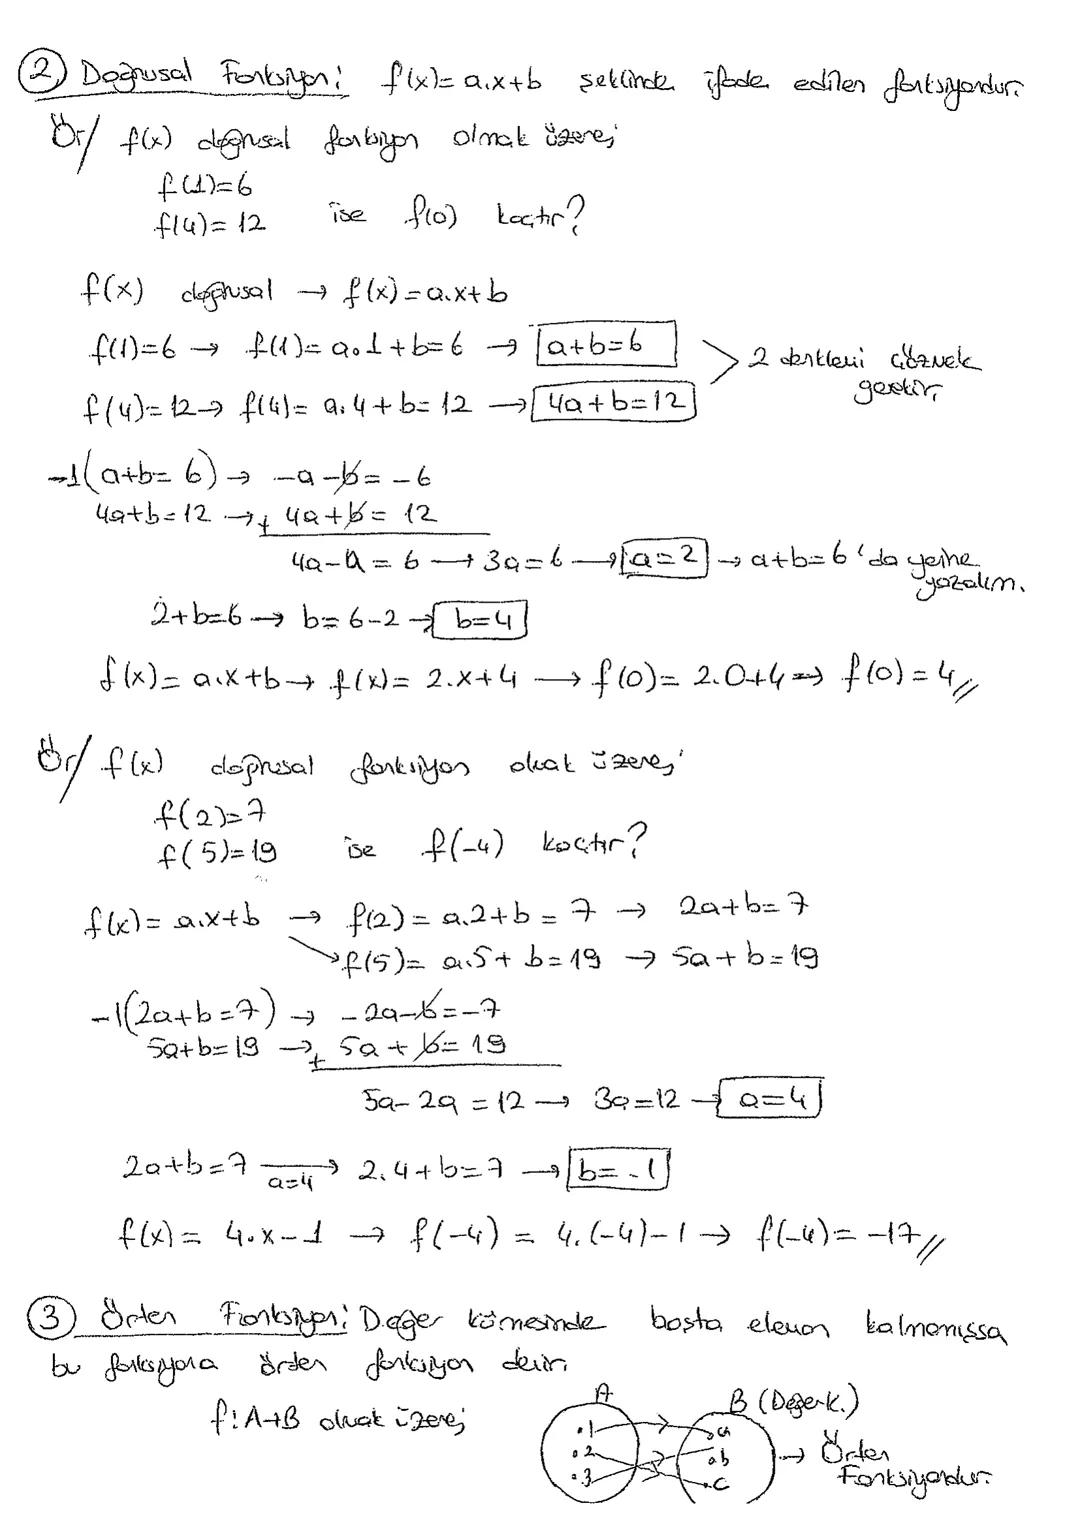 2) Doğrusal Fonksiyon: f(x)= a.x+b şeklinde ifade edilen fonksiyondur.
Ör/ f(x) doğrusal fonksiyon olmak üzere;
f(1)=6
f(4)= 12 ise f(0) kaçtır?
f(x) doğrusal → f(x)=a.x+b
f(1)=6 → f(1)= a.1+b=6 → a+b=6
> 2 denklemi çözmek gerekir,
f(4)=12 → f(4)= a.4+b=12 → 4a+b=12
-1(a+b=6) → -a-b=-6
4a+b=12 → + 4a+b= 12
4a-a=6 → 3a=6 → a=2 → a+b=6'da yerine yazalım.
2+b=6 → b=6-2 → b=4
f(x)= a.x+b → f(x)= 2.x+4 → f(0)= 2.0+4 → f(0)=4//
Ör/ f(x) doğrusal fonksiyon olmak üzere;
f(2)=7
f(5)=19 ise f(-4) kaçtır?
f(x)= a.x+b → f(2)= a.2+b=7 → 2a+b=7
→ f(5)= a.5+b=19 → 5a+b=19
-1(2a+b=7) → -2a-b=-7
5a+b=19 → + 5a+b=19
5a-2a=12 → 3a=12 → a=4
2a+b=7 → a=4 2.4+b=7 → b=-1
f(x)= 4.x-1 → f(-4)= 4.(-4)-1 → f(-4)= -17//
3) Örten Fonksiyon: Değer kümesinde boşta eleman kalmamışsa
bu fonksiyona örten fonksiyon denir.
f:A→B olmak üzere;
A B (Değer k.)
.1 .a
.2 .b
.3 .c
→ Örten Fonksiyondur.